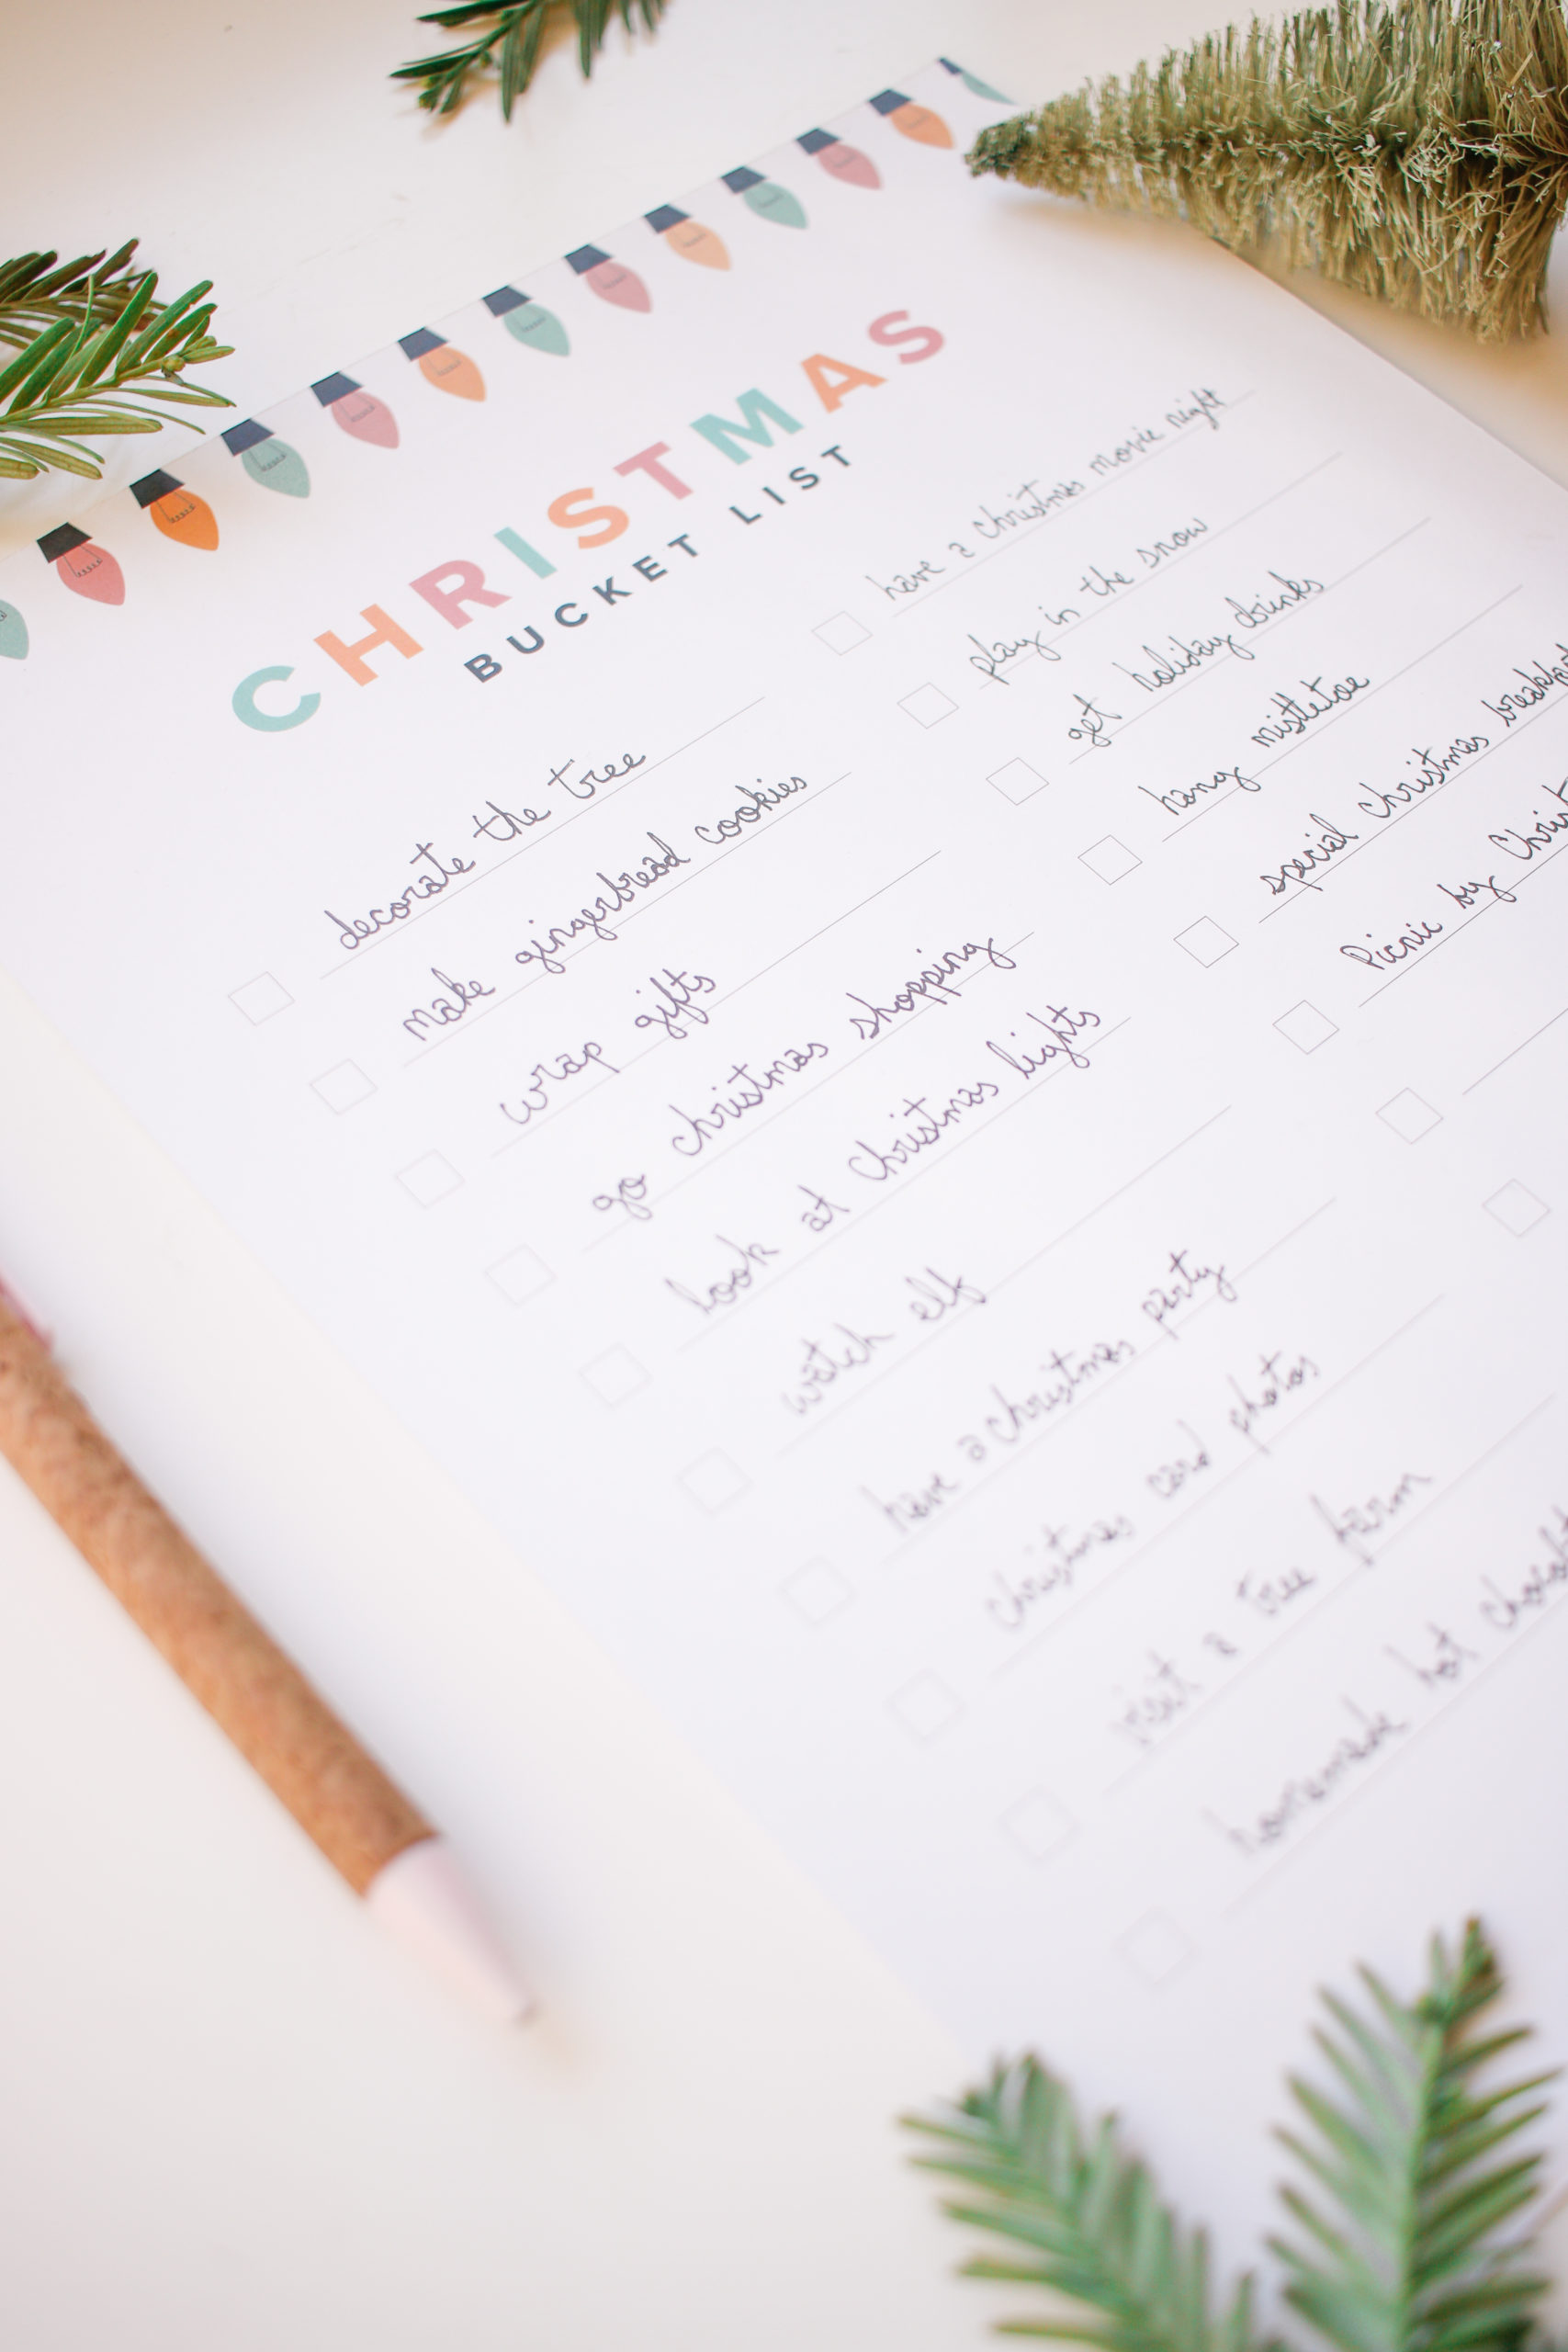 CHRISTMAS
BUCKET LIST
decorate the tree
make gingerbread cookies
wrap gifts
go christmas shopping
look at christmas lights
watch elf
have a christmas party
christmas card photos
visit a tree farm
homemade hot
have a christmas movie night
play in the snow
get holiday drinks
hang mistletoe
special christmas
Picnic by